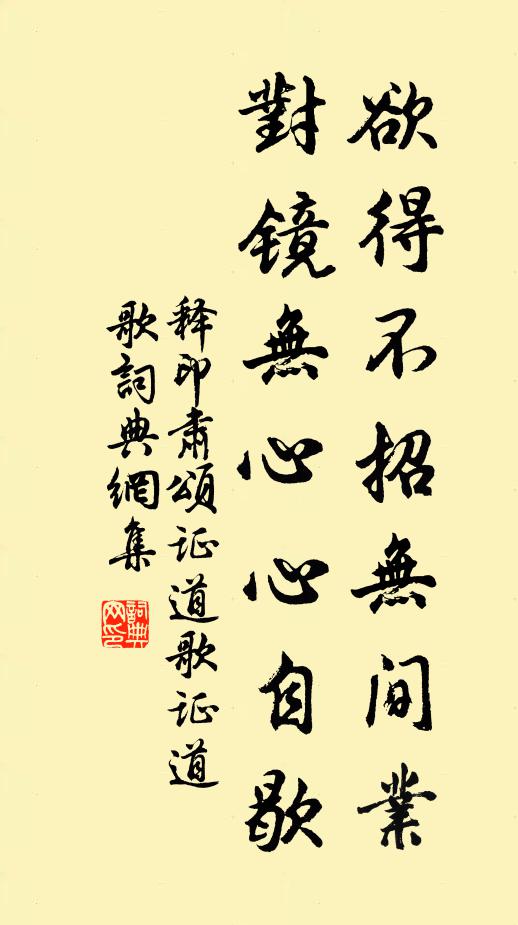 欲得不招無间業
對镜無心心自歇
釋印肃頌证道歌证道
歌詞典網集
詞典网印